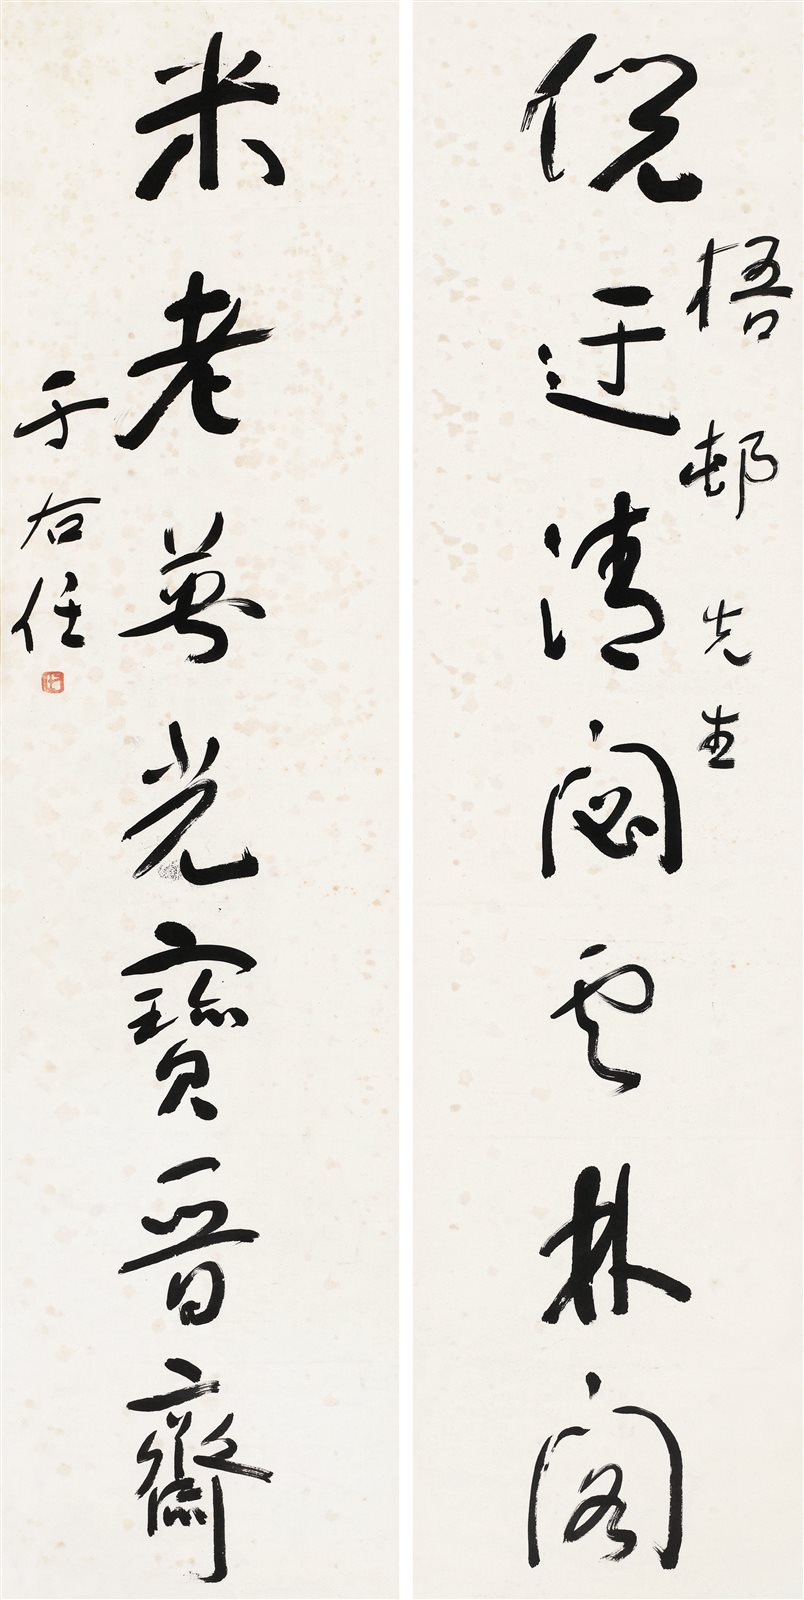 倪迂清閟雲林閣
梧邨先生
米老英光寶晉齋
于右任